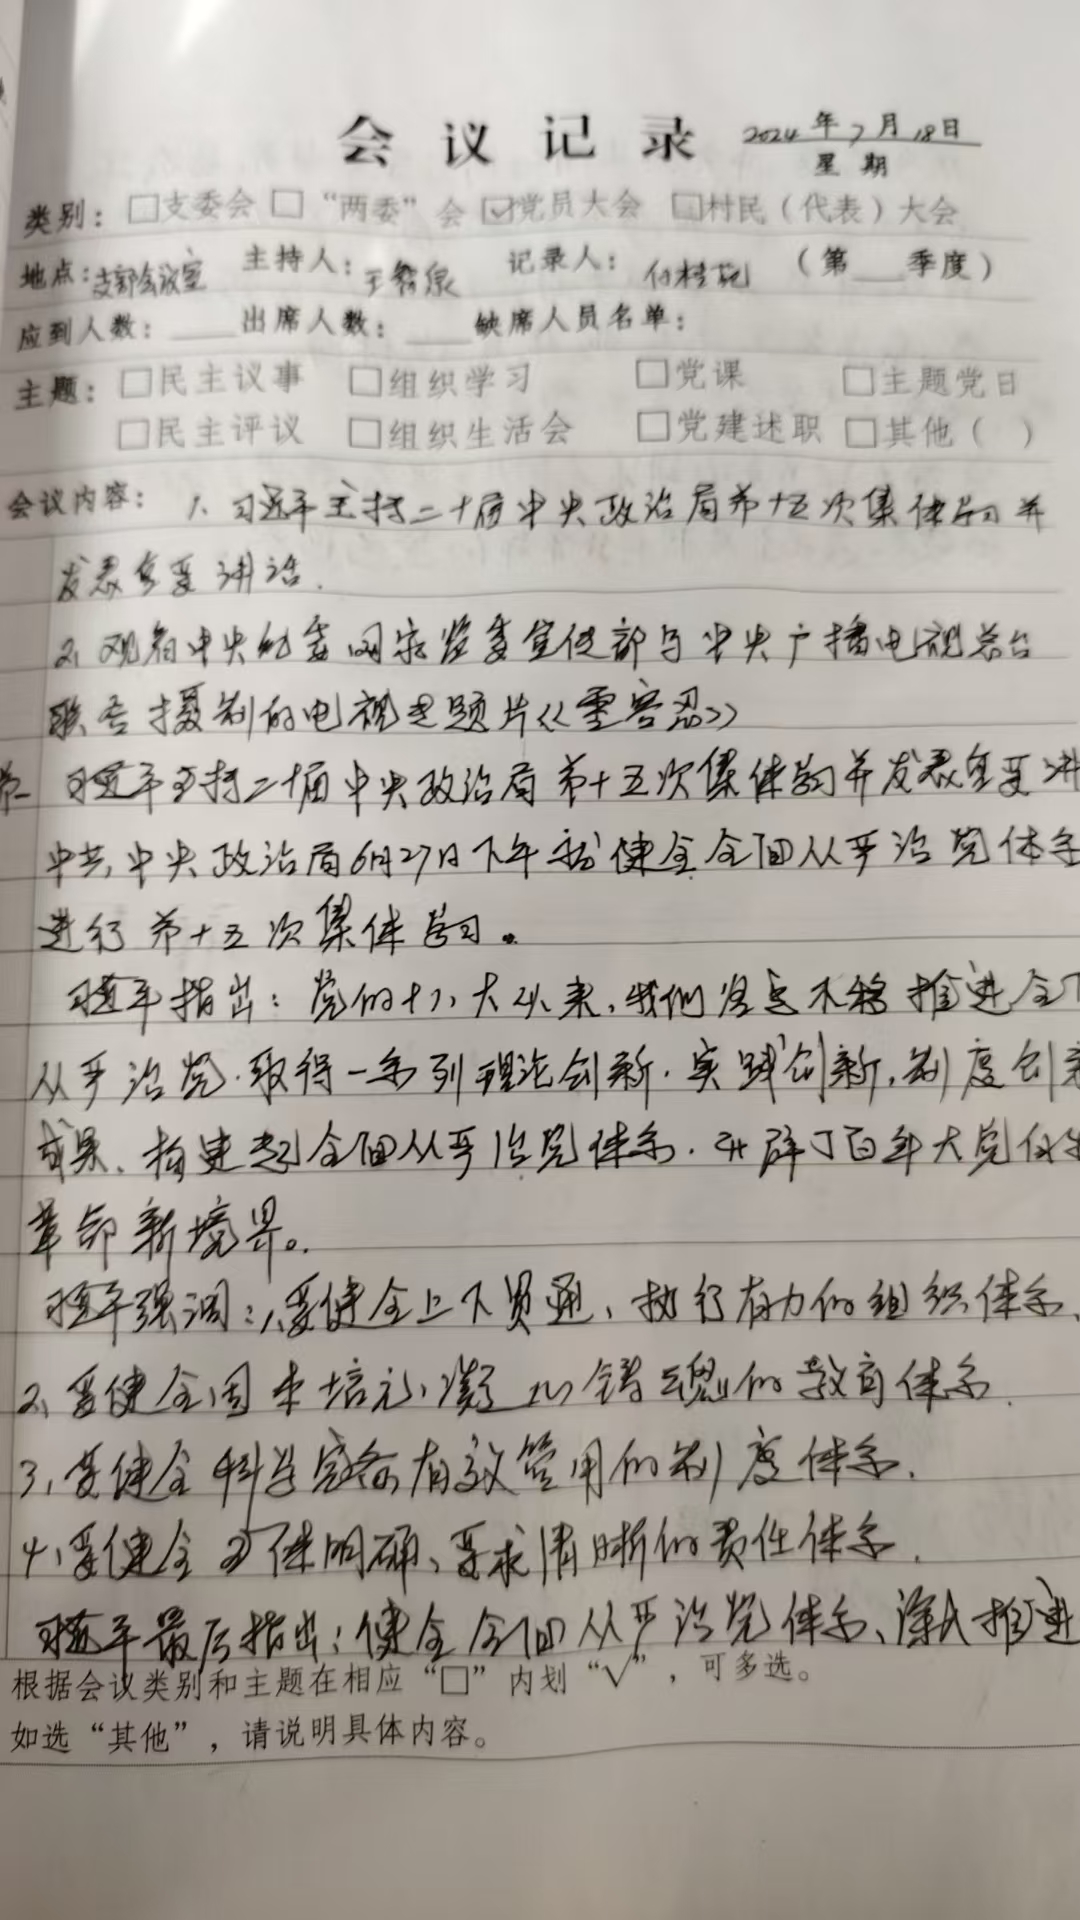 会议记录 2024年7月18日
星期
类别：□支委会 □“两委”会 ☑党员大会 □村民（代表）大会
地点：支部会议室 主持人：王 泉 记录人：付桂 （第___季度）
应到人数：____出席人数：____缺席人员名单：
主题：□民主议事 □组织学习 □党课 □主题党日
□民主评议 □组织生活会 □党建述职 □其他（ ）
会议内容： 1、习近平主持二十届中央政治局第十五次集体学习并
发表重要讲话.
2、观看中央纪委国家监委宣传部与中央广播电视总台
联合摄制的电视专题片《零容忍》
第一 习近平主持二十届中央政治局第十五次集体学习并发表重要讲
中共中央政治局6月27日下午就健全全面从严治党体系
进行第十五次集体学习。
习近平指出：党的十八大以来,我们坚定不移推进全
从严治党.取得一系列理论创新.实践创新,制度创新
成果、构建起全面从严治党体系.开辟了百年大党自
革命新境界。
习近平强调：1、要健全上下贯通、执行有力的组织体系、
2、要健全固本培元、凝心铸魂的教育体系.
3、要健全科学完备有效管用的制度体系.
4、要健全主体明确、要求清晰的责任体系.
习近平最后指出：健全全面从严治党体系、深入推进
根据会议类别和主题在相应“□”内划“√”，可多选。
如选“其他”，请说明具体内容。